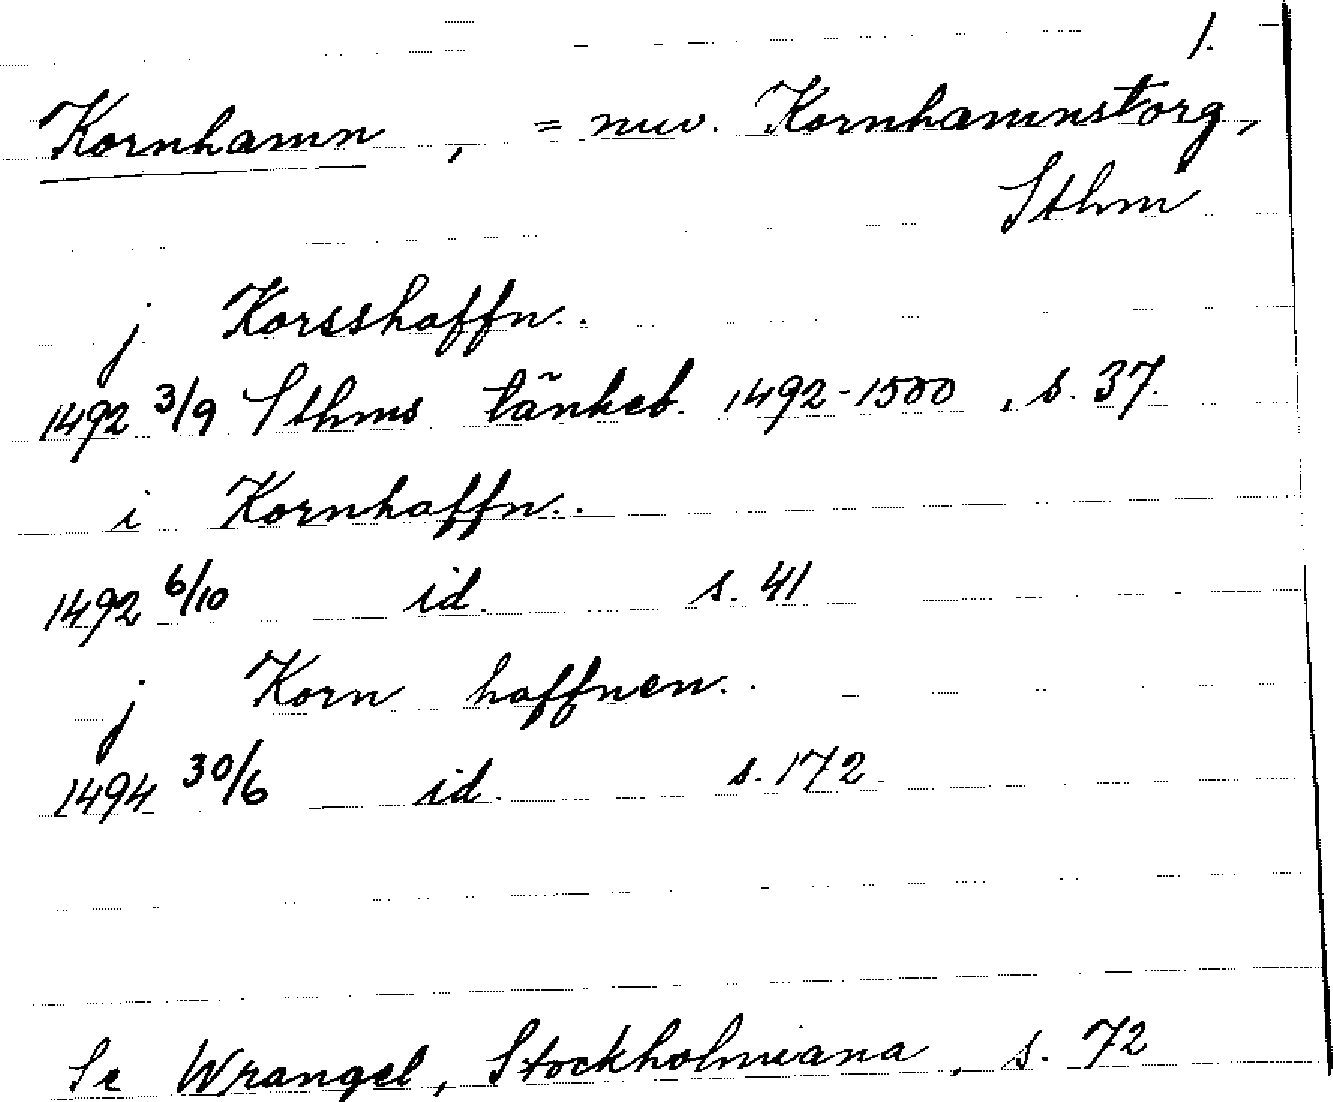 1.
Kornhamn, = nuv. Kornhamnstorg,
Sthm
j Korsshaffn..
1492 3/9 Sthms tänkeb. 1492-1500, s. 37.
i Kornhaffn..
1492 6/10 id. s. 41
j Korn haffnen..
1494 30/6 id. s. 172
Se Wrangel, Stockholmiana, s. 72